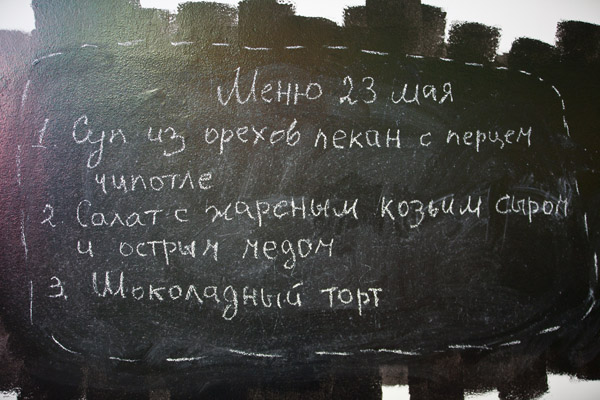 Меню 23 мая
1. Суп из орехов пекан с перцем
чипотле
2. Салат с жареным козьим сыром
и острым медом
3. Шоколадный торт